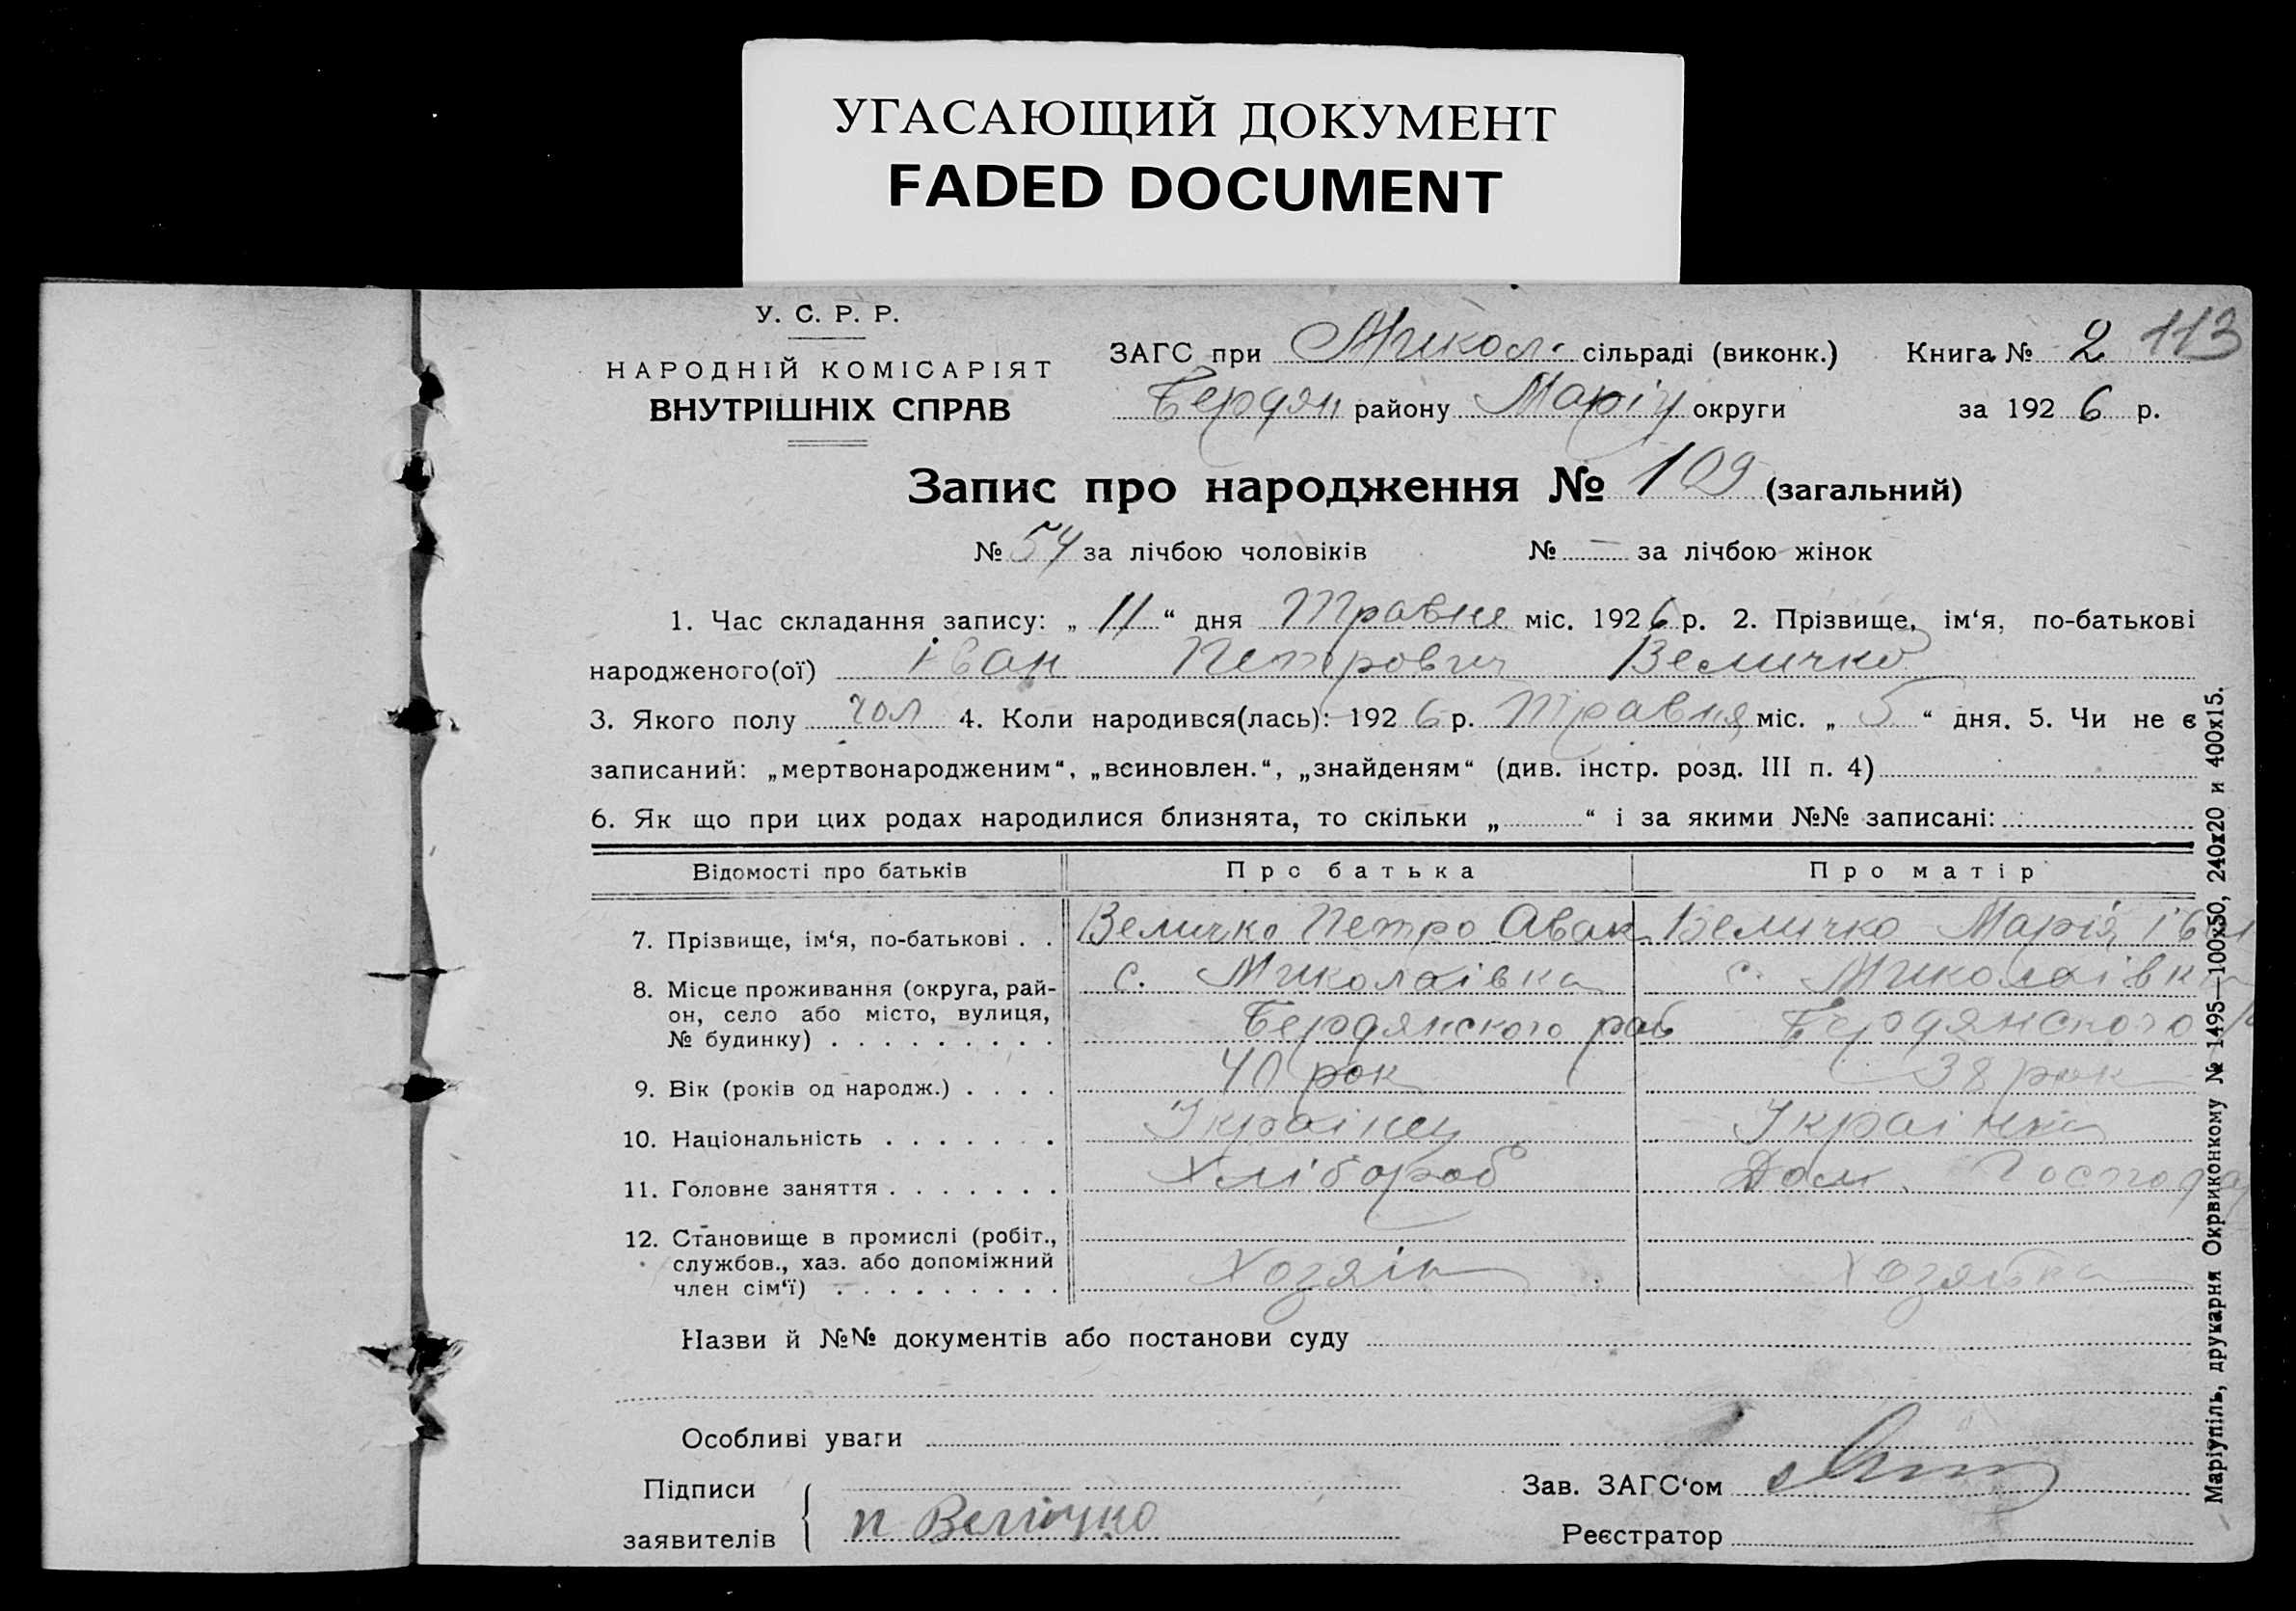 УГАСАЮЩИЙ ДОКУМЕНТ
FADED DOCUMENT
У. С. Р. Р.
НАРОДНІЙ КОМІСАРІЯТ
ВНУТРІШНІХ СПРАВ
ЗАГС при Микол. сільраді (виконк.) Книга № 2 113
Бердян району Маріу округи за 1926 р.
Запис про народження № 109 (загальний)
№ 54 за лічбою чоловіків № — за лічбою жінок
1. Час складання запису: „ 11 “ дня Травне міс. 1926 р. 2. Прізвище, ім‘я, по-батькові
народженого(ої) Іван Петрович Величко
3. Якого полу чол 4. Коли народився(лась): 1926 р. Травня міс. „ 5 “ дня. 5. Чи не є
записаний: „мертвонародженим“, „всиновлен.“, „знайденям“ (див. інстр. розд. III п. 4)
6. Як що при цих родах народилися близнята, то скільки „ “ і за якими №№ записані:
Відомості про батьків Про батька Про матір
7. Прізвище, ім‘я, по-батькові . . Величко Петро Авак. Величко Марія
8. Місце проживання (округа, рай-
он, село або місто, вулиця,
№ будинку) . . . . . . . . .
с. Миколаівка с. Миколаівка
Бердянского Бердянского
9. Вік (років од народж.) . . . . 40 рок 38 рок
10. Національність . . . . . . . Українец Українка
11. Головне заняття . . . . . . . Хлібороб Дом. Господар
12. Становище в промислі (робіт.,
службов., хаз. або допоміжний
член сім‘ї) . . . . . . . . .
Хозяін Хозяйка
Назви й №№ документів або постанови суду
Особливі уваги
Підписи
заявителів
п Величко
Зав. ЗАГС‘ом
Реєстратор
Маріупіль, друкарня Окрвиконкому № 1495—100х50, 240х20 и 400х15.